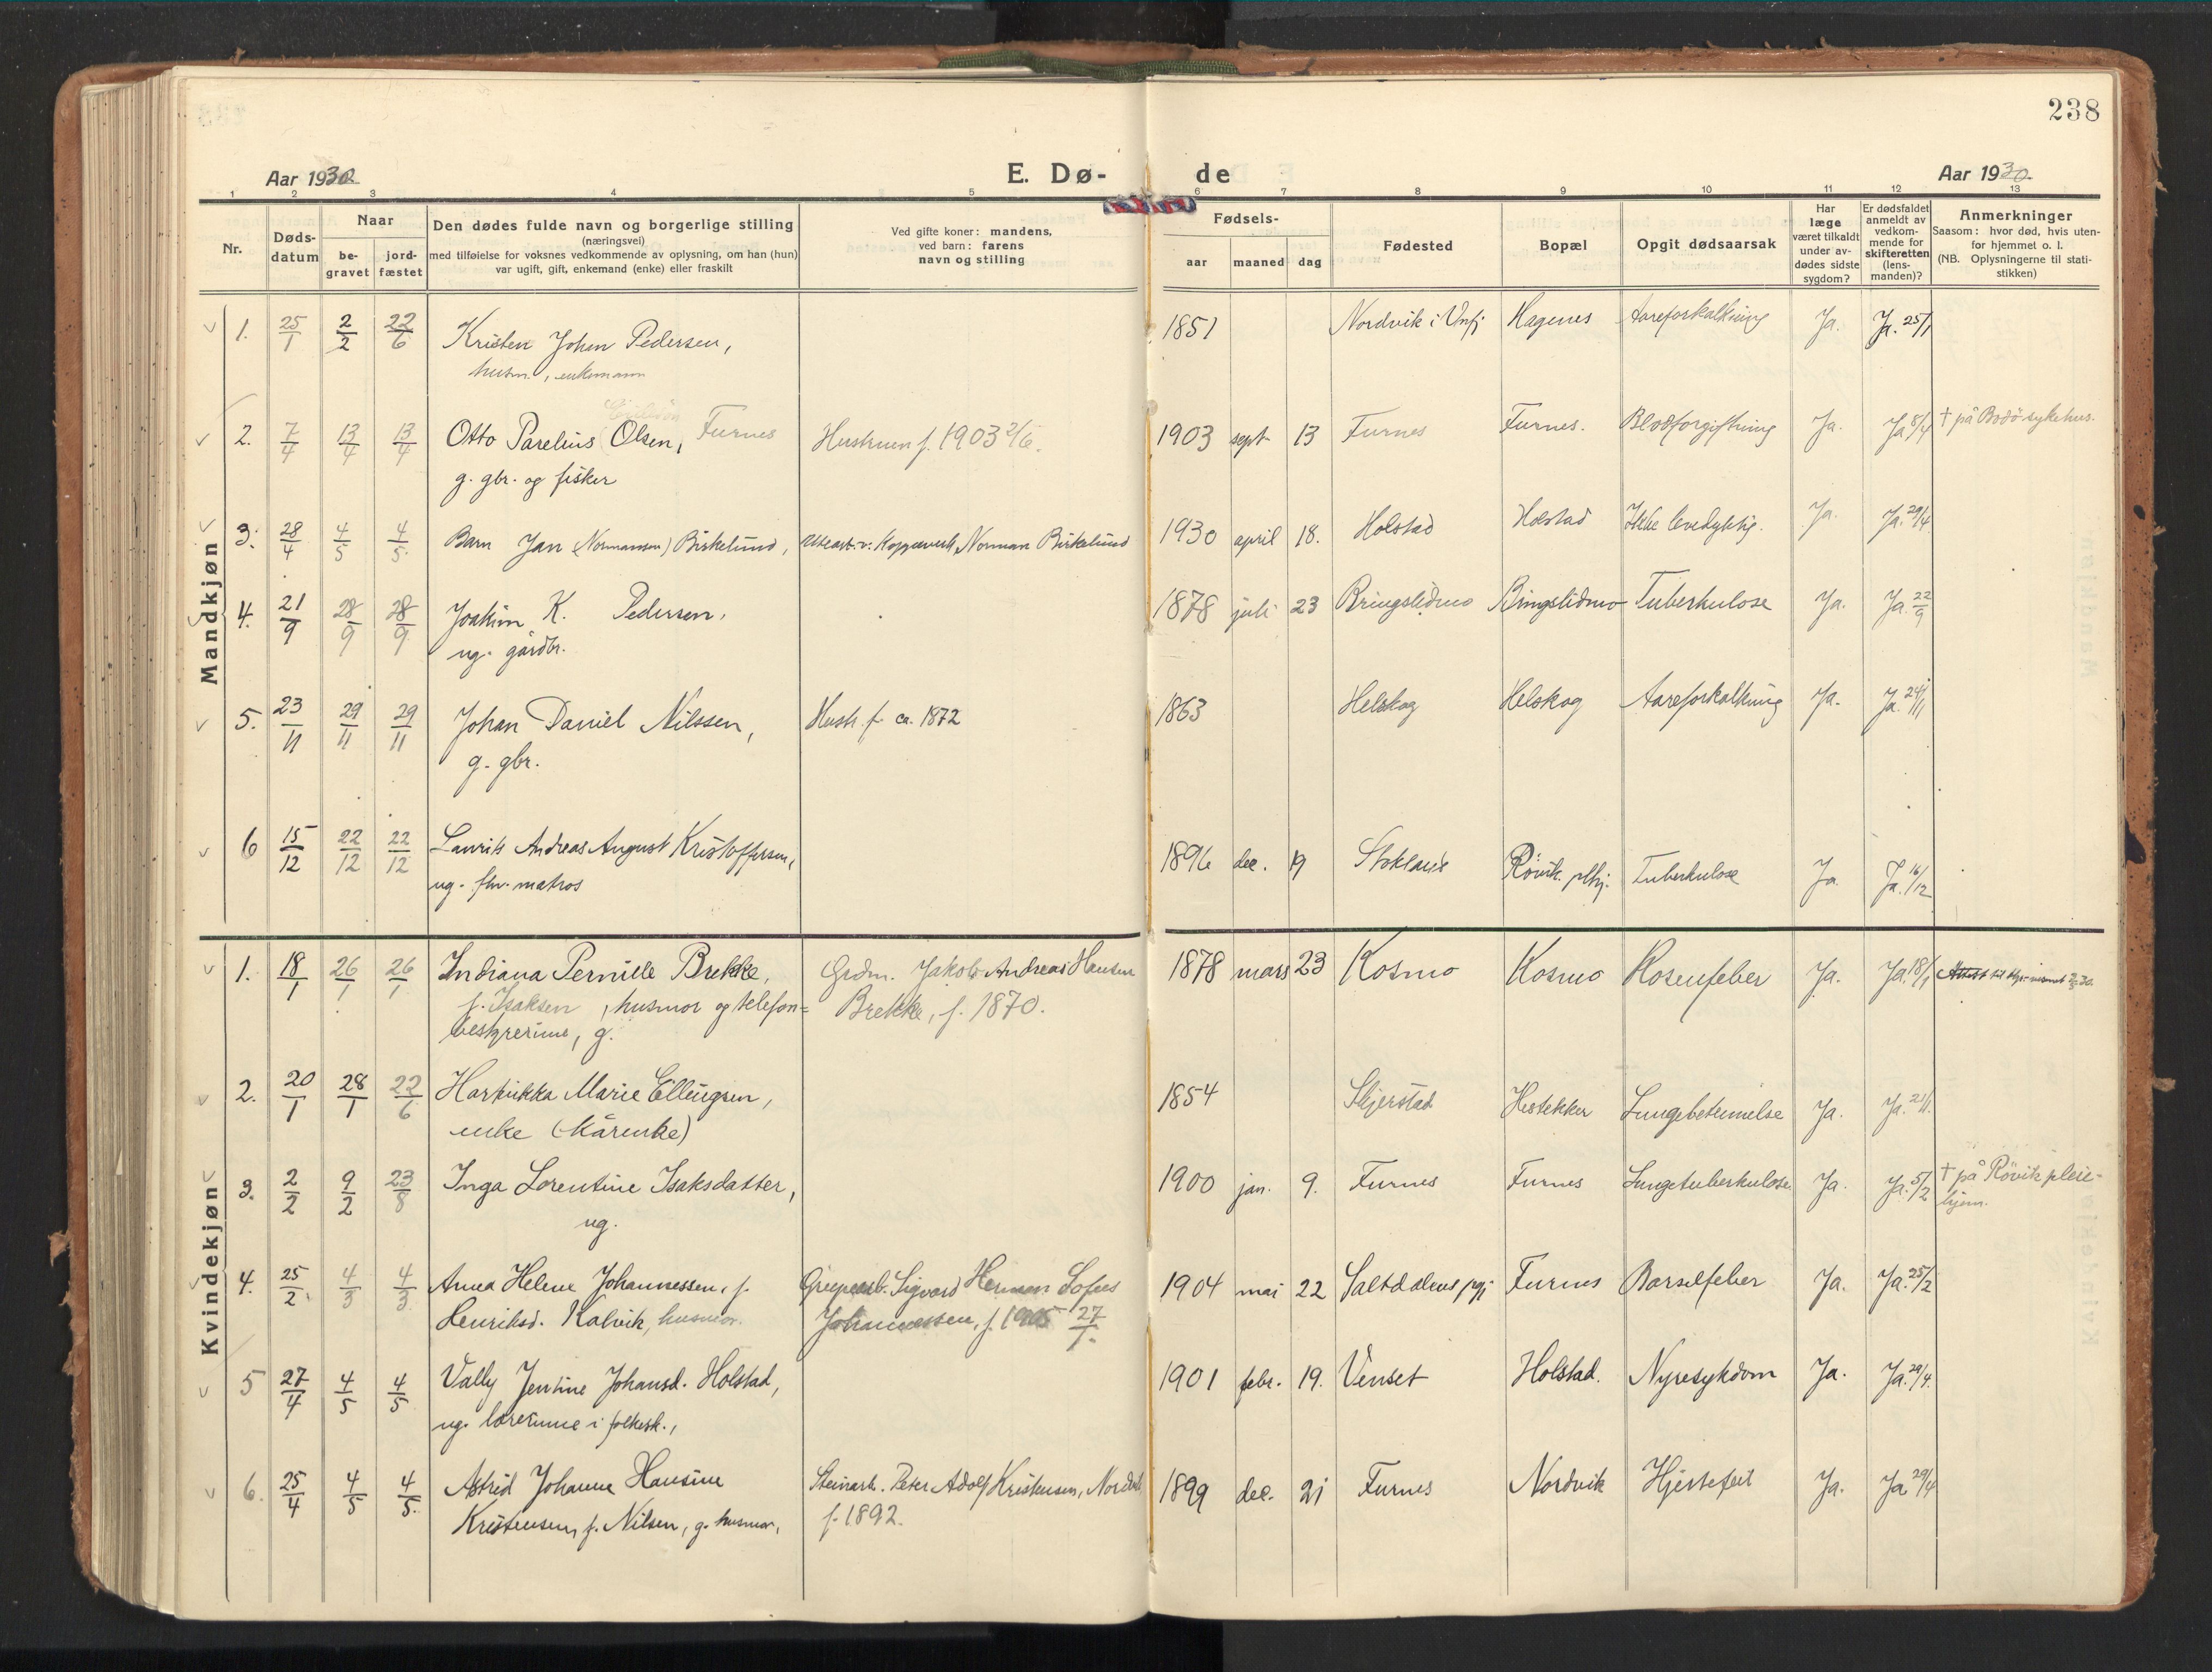 238
Aar 1930.
E. Dø-
de
Aar 1930.
1 2 3 4 5 6 7 8 9 10 11 12 13
Nr.
Døds-
datum
Naar
be-
gravet
jord-
fæstet
Den dødes fulde navn og borgerlige stilling
(næringsvei)
med tilføielse for voksnes vedkommende av oplysning, om han (hun)
var ugift, gift, enkemand (enke) eller fraskilt
Ved gifte koner: mandens,
ved barn: farens
navn og stilling
Fødsels-
aar maaned dag
Fødested
Bopæl
Opgit dødsaarsak
Har
læge
været tilkaldt
under av-
dødes sidste
sygdom?
Er dødsfaldet
anmeldt av
vedkom-
mende for
skifteretten
(lens-
manden)?
Anmerkninger
Saasom: hvor død, hvis uten-
for hjemmet o. l.
(NB. Oplysningerne til stati-
stikken)
Mandkjøn
1. 25/1 2/2 22/6 Kristen Johan Pedersen, 1851 Nordvik i Hagenes Aareforkalkning Ja. Ja. 25/1
husm., enkemann
2. 7/4 13/4 13/4 Otto Parelius Olsen, Furnes Hustruen f. 1903 2/6. 1903 sept 13 Furnes Furnes. Blodforgiftning Ja. Ja 8/4 † på Bodö sykehus.
g. gbr. og fisker
3. 28/4 4/5 4/5 Barn Jan (Normansen) Birkelund, Norman Birkelund 1930 april 18. Holstad Holstad Ikke levedyktig. Ja. Ja. 29/4
4. 21/9 28/9 28/9 Joakim K. Pedersen, 1878 juli 23 Bringslidmo Bringslidmo Tuberkulose Ja. Ja. 22/9
ug. gårdbr.
5. 23/11 29/11 29/11 Johan Daniel Nilssen, Hustr. f. ca. 1872 1863 Helskog Helskog Aareforkalkning Ja. Ja. 24/11
g. gbr.
6 15/12 22/12 22/12 Laurits Andreas August Kristoffersen, 1896 dec. 19 Stokland Røvik plhj. Tuberkulose Ja Ja. 16/12
ug. fhv. matros
Kvindekjøn
1. 18/1 26/1 26/1 Indiana Pernille Brekke, Grdm. Jakob Andreas Hansen 1878 mars 23 Kosmo Kosmo Rosenfeber Ja. Ja 18/1
f. Isaksen, husmor og telefon= Brekke, f. 1870.
bestyrerinne, g.
2. 20/1 28/1 22/6 Hartvikka Marie Ellingsen, 1854 Skjerstad Hestekker Lungebetennelse Ja. Ja. 21/1.
enke (kårenke)
3. 2/2 9/2 23/8 Inga Lorentine Isaksdatter, 1900 jan. 9. Furnes Furnes Lungetuberkulose. Ja. Ja. 5/2 † på Røvik pleie-
ug. hjem.
4. 25/2. 4/3 4/3 Anna Helene Johannessen, f. Sigvard Herman Sofus 1904 mai 22 Saltdalens pgj Furnes Barselfeber Ja. Ja. 25/2
Henriksd. Kalvik, husmor. Johannessen, f. 1905 27/1.
5 27/4 4/5 4/5 Vally Jentine Johansd. Holstad, 1901 febr. 19. Venset Holstad. Nyresykdom Ja. Ja. 29/4.
ug. lærerinne i folkesk.,
6. 25/4 4/5 4/5. Astrid Johanne Hansine Steinarb. Peter Adolf Kristensen, Nordvik 1899 dec. 21 Furnes Nordvik Hjertefeil Ja. Ja 29/4
Kristensen, f. Nilsen, g. husmor, f. 1892.